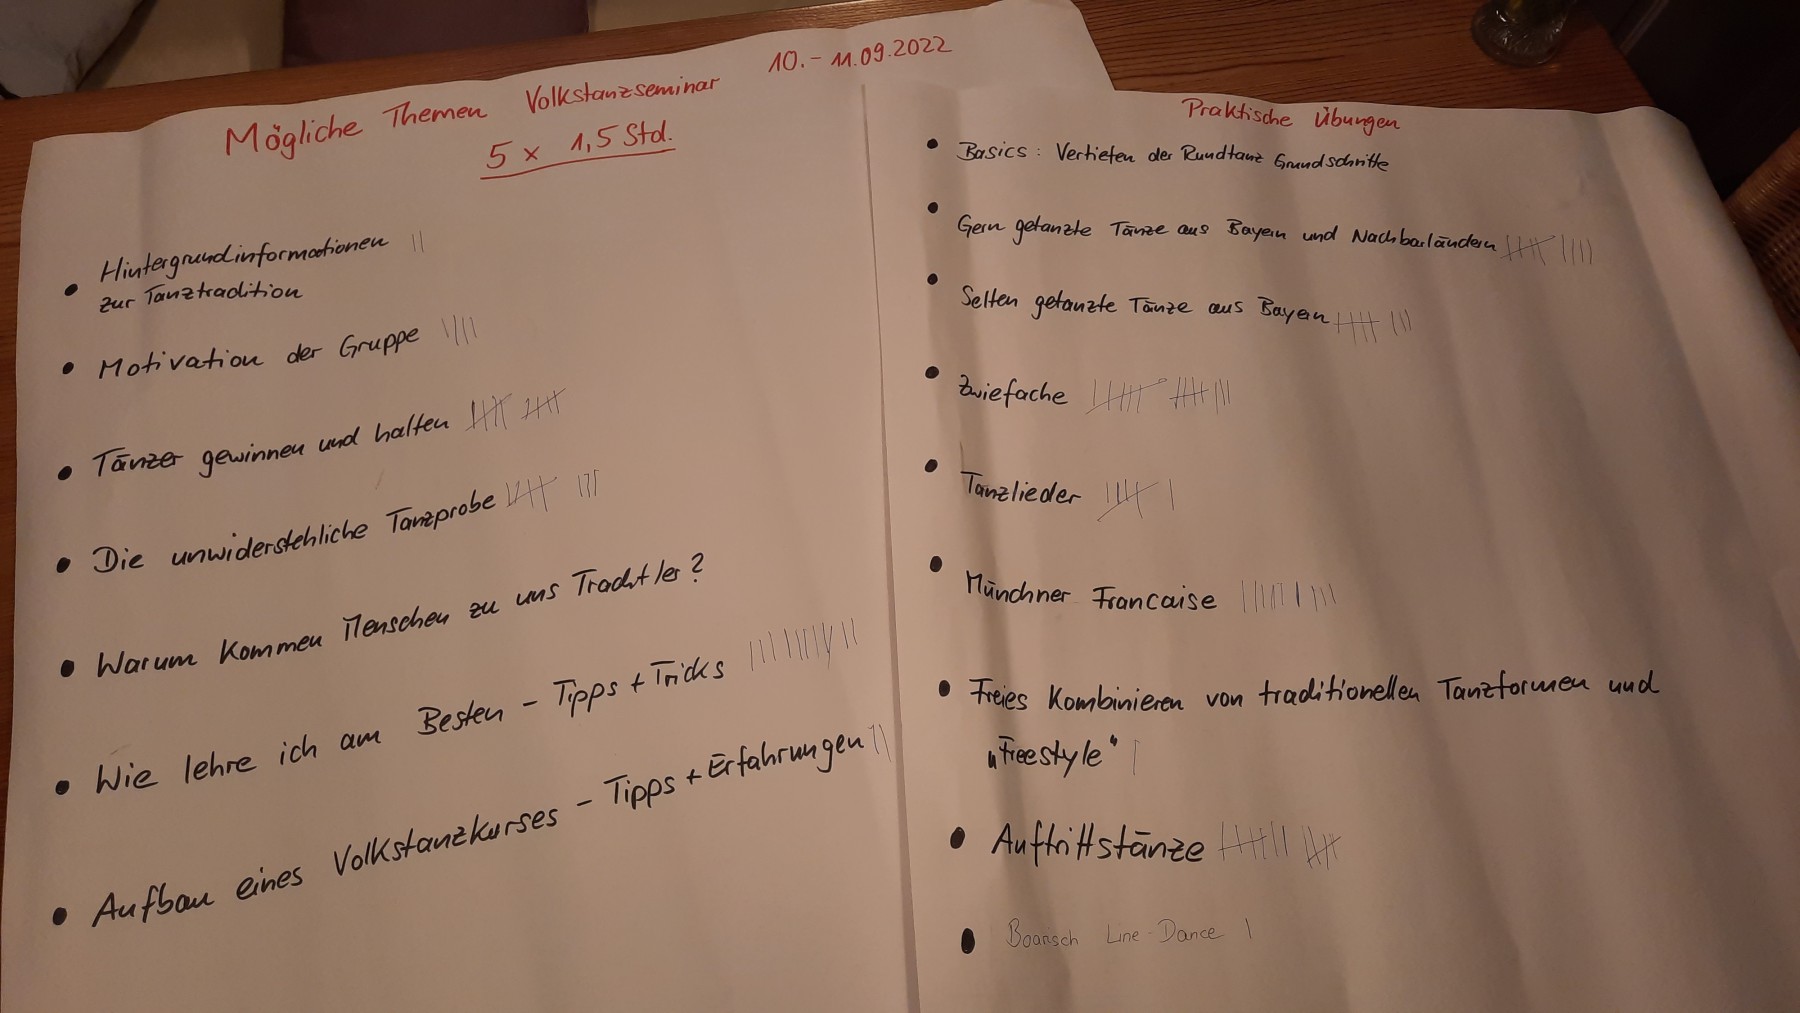 Mögliche Themen Volkstanzseminar 10.-11.09.2022
5 x 1,5 Std.
• Hintergrundinformationen ||
zur Tanztradition
• Motivation der Gruppe ||||
• Tänzer gewinnen und halten
• Die unwiderstehliche Tanzprobe
• Warum kommen Menschen zu uns Trachtler?
• Wie lehre ich am Besten - Tipps + Tricks
• Aufbau eines Volkstanzkurses - Tipps + Erfahrungen ||
Praktische Übungen
• Basics: Vertiefen der Rundtanz Grundschritte
• Gern getanzte Tänze aus Bayern und Nachbarländern
• Selten getanzte Tänze aus Bayern
• Zwiefache
• Tanzlieder
• Münchner Francaise
• Freies Kombinieren von traditionellen Tanzformen und
„Freestyle“ |
• Auftrittstänze
• Boarisch Line-Dance |